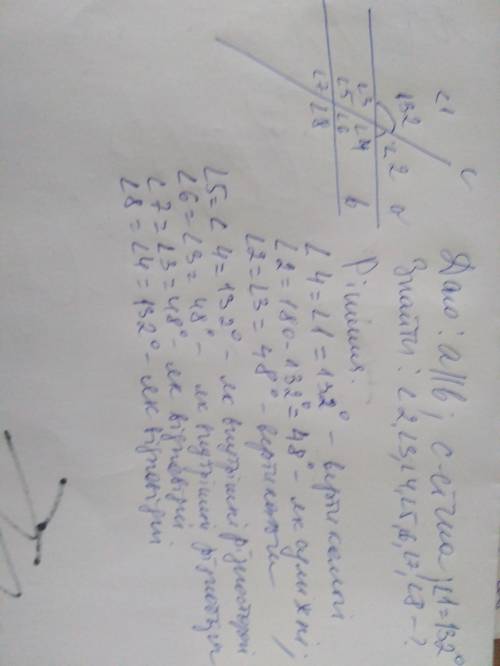 ∠1 c
132° ∠2 a
∠3 ∠4
∠5 ∠6 b
∠7 ∠8
Дано: a||b; c-січна; ∠1=132°
Знайти: ∠2,∠3,∠4,∠5,∠6,∠7,∠8-?
Рішення.
∠4=∠1=132°- вертикальні
∠2=180-132°=48°- як суміжні;
∠2=∠3=48°- вертикальні
∠5=∠4=132°- як внутрішні різносторонні
∠6=∠3=48°- як внутрішні різносторонні
∠7=∠3=48°- як відповідні
∠8=∠4=132°- як відповідні